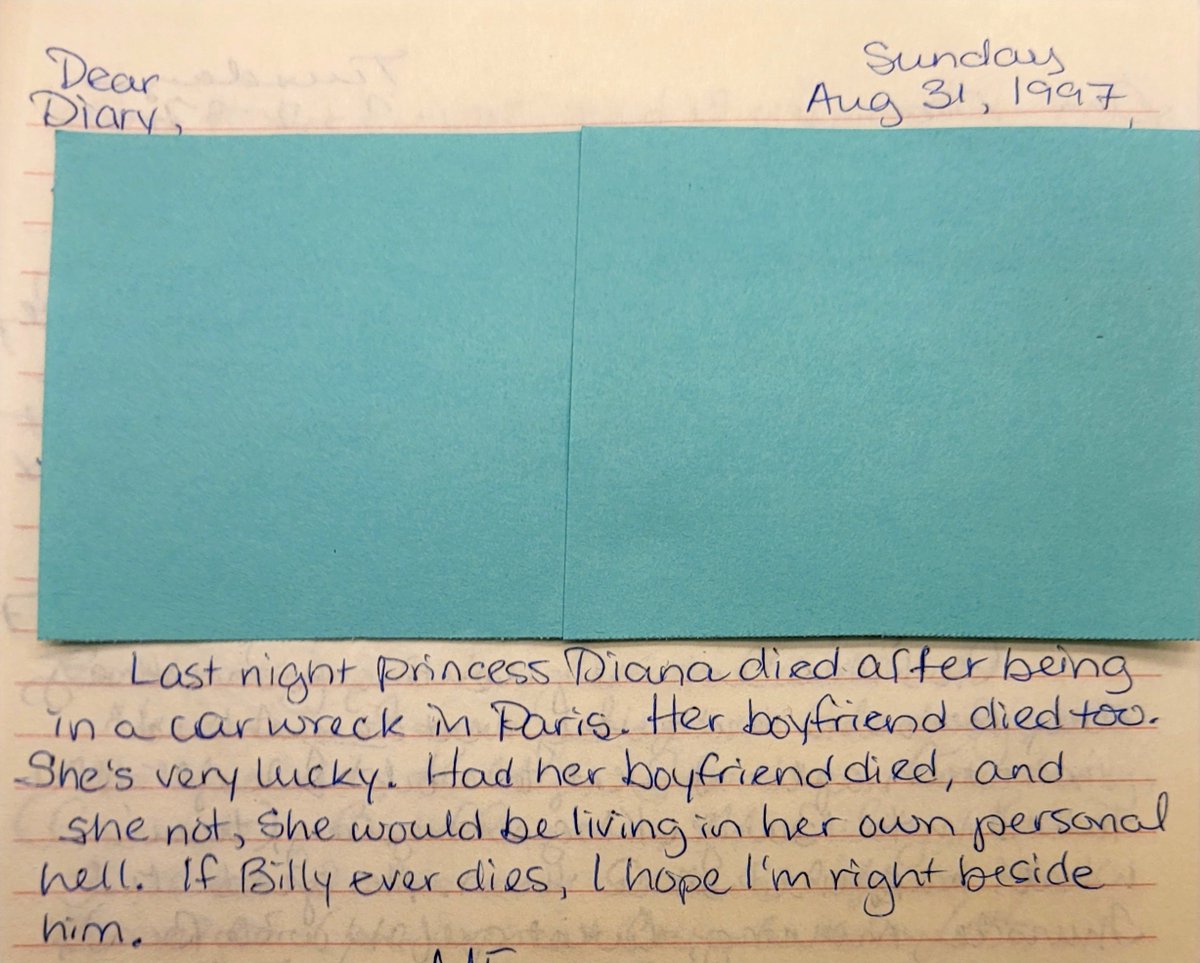 Dear
Diary,
Sunday
Aug 31, 1997
Last night princess Diana died after being
in a car wreck in Paris. Her boyfriend died too.
She's very lucky. Had her boyfriend died, and
she not, she would be living in her own personal
hell. If Billy ever dies, I hope I'm right beside
him.